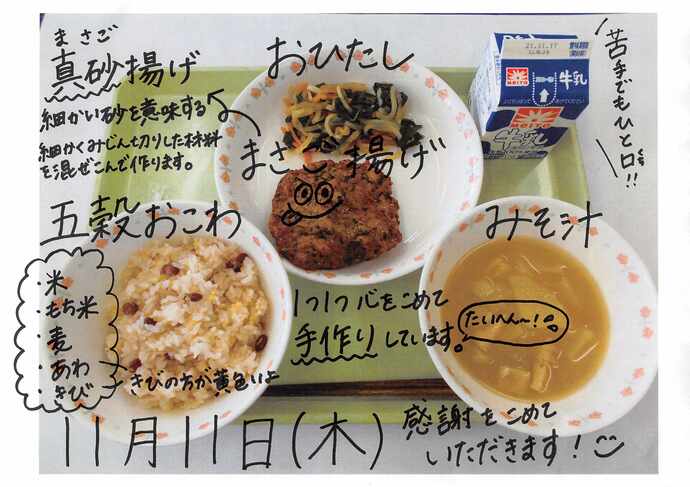 まさご
真砂揚げ
細かい砂を意味する
細かくみじん切りした材料
を混ぜこんで作ります。
おひたし
まさご揚げ
21.11.17
牛乳
MEITO
苦手でもひと口!!
五穀おこわ
・米
・もち米
・麦
・あわ
・きび
きびの方が黄色いよ
みそ汁
1つ1つ心をこめて
手作りしています。
たいへん〜!
11月11日(木)
感謝をこめて
いただきます!